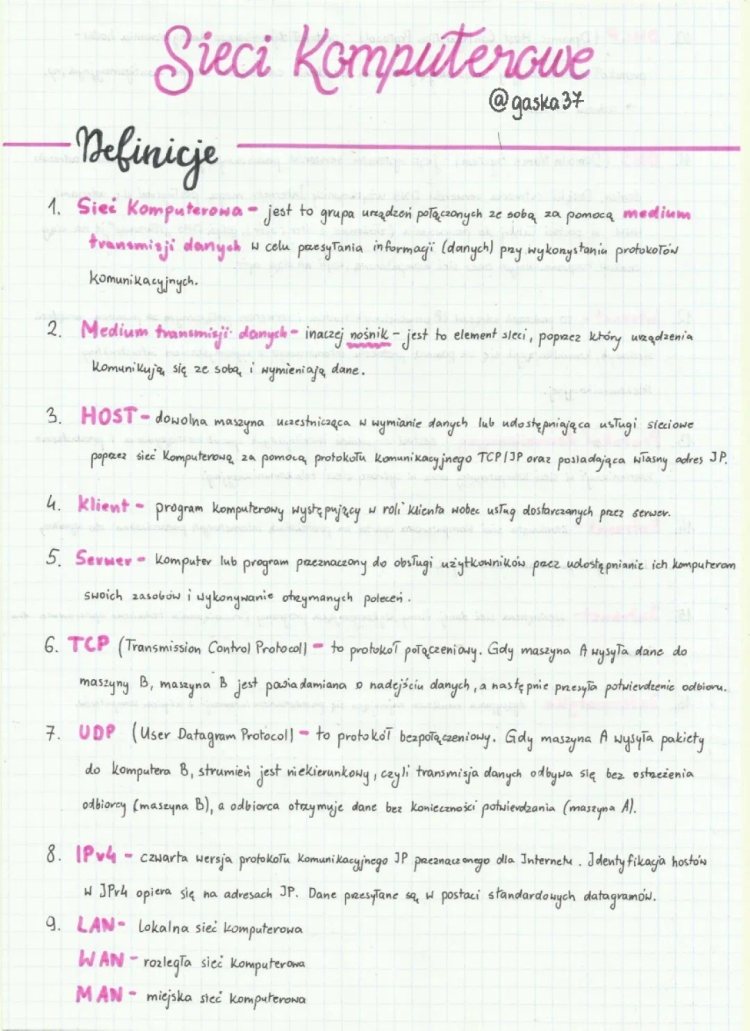 Sieci Komputerowe
@gaska37
Definicje
1. Sieć Komputerowa - jest to grupa urządzeń połączonych ze sobą za pomocą medium
transmisji danych w celu przesyłania informacji (danych) przy wykorzystaniu protokołów
komunikacyjnych.
2. Medium transmisji danych - inaczej nośnik - jest to element sieci, poprzez który urządzenia
komunikują się ze sobą i wymieniają dane.
3. HOST - dowolna maszyna uczestnicząca w wymianie danych lub udostępniająca usługi sieciowe
poprzez sieć komputerową za pomocą protokołu komunikacyjnego TCP/IP oraz posiadająca własny adres IP.
4. Klient - program komputerowy występujący w roli klienta wobec usług dostarczanych przez serwer.
5. Serwer - Komputer lub program przeznaczony do obsługi użytkowników przez udostępnianie ich komputerom
swoich zasobów i wykonywanie otrzymanych poleceń.
6. TCP (Transmission Control Protocol) - to protokół połączeniowy. Gdy maszyna A wysyła dane do
maszyny B, maszyna B jest powiadamiana o nadejściu danych, a następnie przesyła potwierdzenie odbioru.
7. UDP (User Datagram Protocol) - to protokół bezpołączeniowy. Gdy maszyna A wysyła pakiety
do komputera B, strumień jest niekierunkowy, czyli transmisja danych odbywa się bez ostrzeżenia
odbiorcy (maszyna B), a odbiorca otrzymuje dane bez konieczności potwierdzania (maszyna A).
8. IPv4 - czwarta wersja protokołu komunikacyjnego IP przeznaczonego dla Internetu. Identyfikacja hostów
w IPv4 opiera się na adresach IP. Dane przesyłane są w postaci standardowych datagramów.
9. LAN - lokalna sieć komputerowa
WAN - rozległa sieć komputerowa
MAN - miejska sieć komputerowa